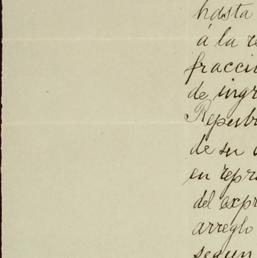 hasta
á la r
fracci
de ingr
Repub
de su
en repr
del expr
arreglo
segun